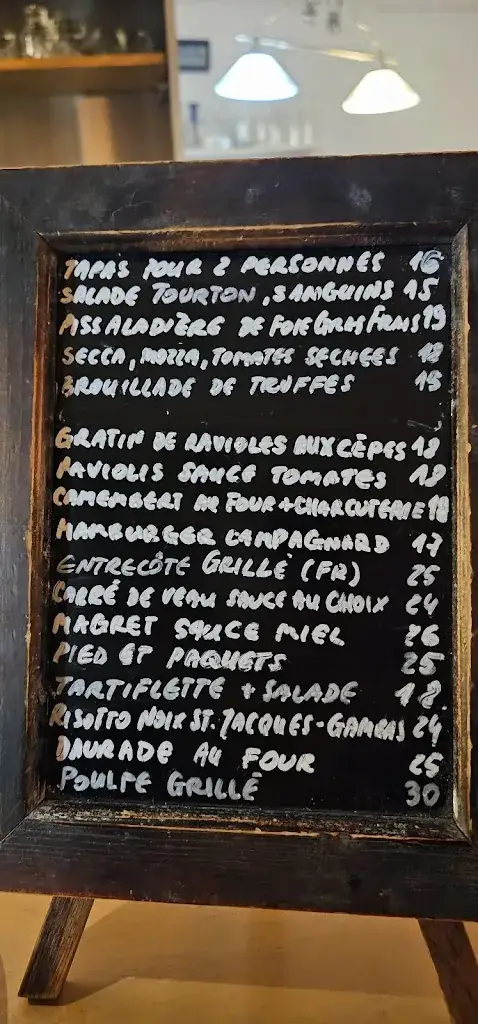 TAPAS POUR 2 PERSONNES 16
SALADE TOURTON, SANGUINS 15
PISSALADIÈRE DE FOIE GRAS FRAIS 19
SECCA, MOZZA, TOMATES SECHEES 18
BROUILLADE DE TRUFFES 19
GRATIN DE RAVIOLES AUX CÈPES 18
RAVIOLIS SAUCE TOMATES 18
CAMEMBERT AU FOUR + CHARCUTERIE 18
HAMBURGER CAMPAGNARD 17
ENTRECÔTE GRILLÉ (FR) 25
CARRÉ DE VEAU SAUCE AU CHOIX 24
MAGRET SAUCE MIEL 26
PIED ET PAQUETS 25
TARTIFLETTE + SALADE 18
RISOTTO NOIX ST. JACQUES - GAMBAS 24
DAURADE AU FOUR 25
POULPE GRILLÉ 30